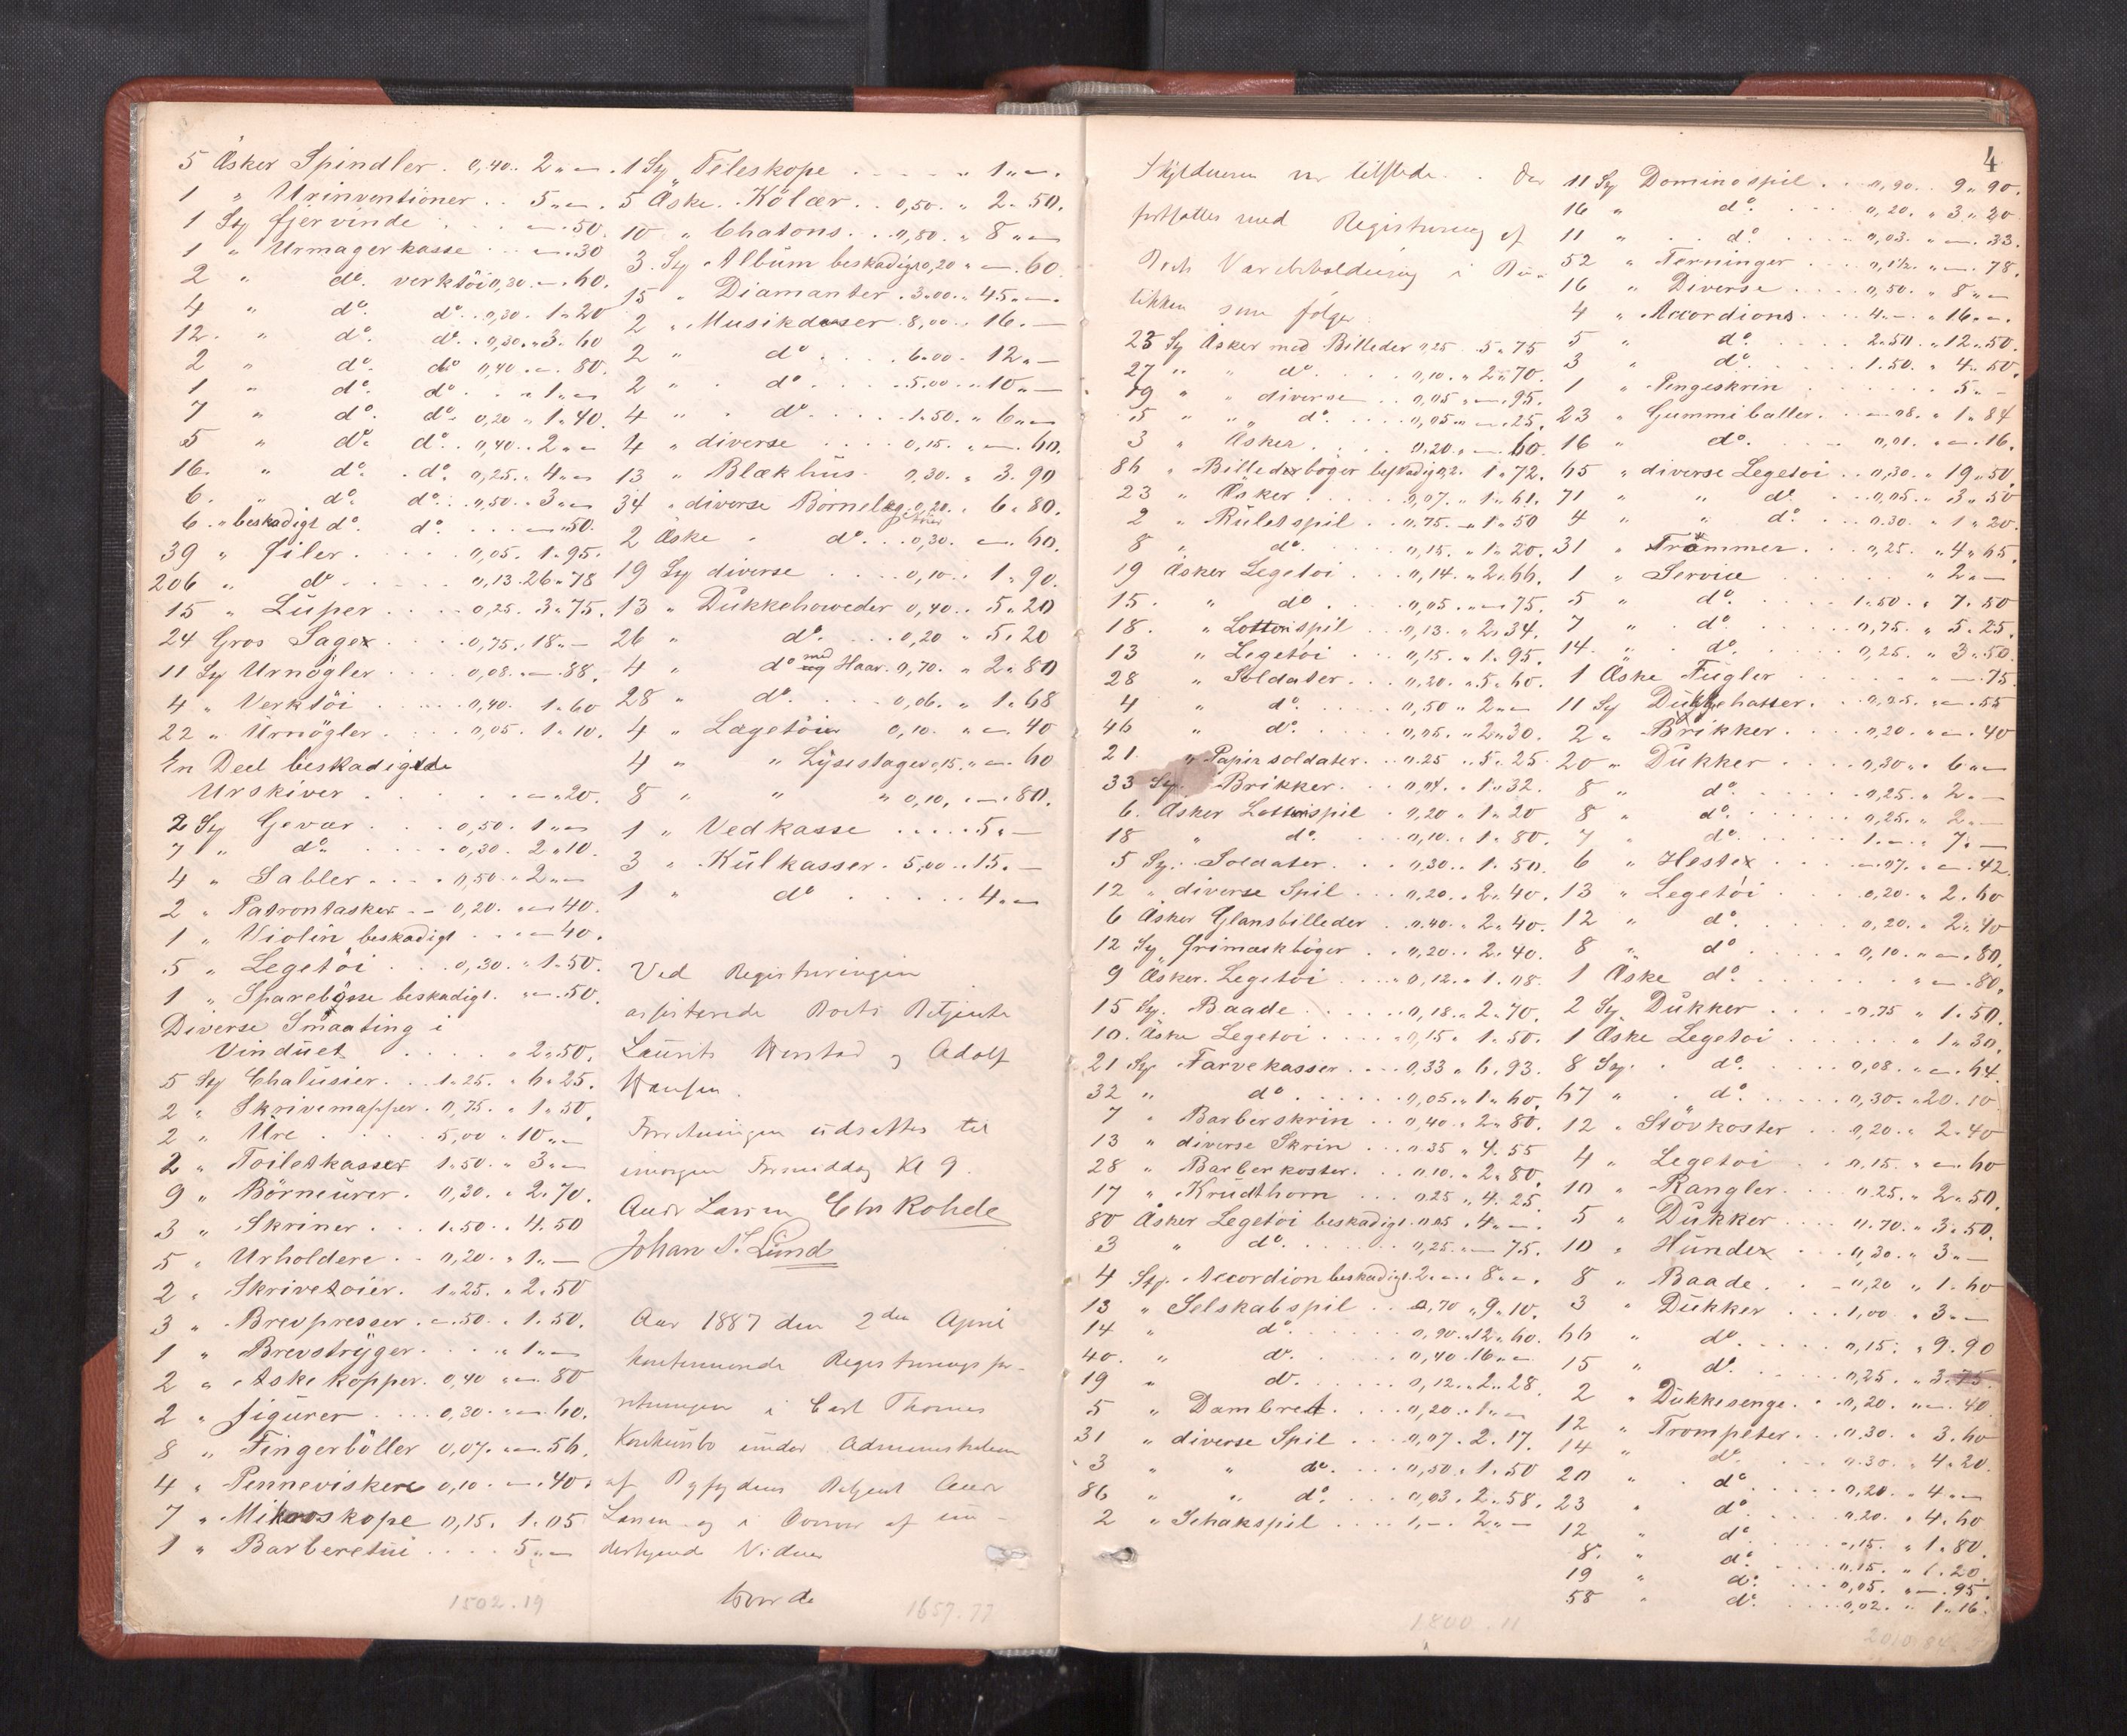 5 Äsker Spindler . 0,40 . 2 „ —
1 „ Urinventioner . . 5 „ — .
1 Sty fjervinde . . . — . 50.
1 „ Urmagerkasse . . — . 30
2 „ do. verktöi 0,30 . — . 60.
4 „ do. do. . 0,30 . 1 „ 20
12. „ do. do. . 0,30 . „ 3. 60
2 „ do. do 0,40 . — . 80.
1 „ do. do. . „ 1 „ —
7 „ do. do. 0,20 „ 1 „ 40.
5 „ do. do. . 0,40 . . 2 „ —
16. „ do. . do. 0,25 . 4 „ —
6. „ do. do. . 0,50 . . 3 „ —
6 . „ beskadigt do. do. . . — . 50.
39 „ Filer . . . . 0,05 . 1 . 95.
206 „ do . . . . 0,13 . 26 „ 78
15 „ Lüper . . . . 0,25 . 3 „ 75.
24 Gros Sager . . . 0,75 . 18 „ —
11 Sty Urnögler . . . 0,08 . — . 88.
4 „ Verktöi . . . . 0,40 . 1 „ 60
22 „ Urnögler . . . 0,05 . 1 „ 10.
En Deel beskadigede
Urskiver . . . . . — „ 20.
2 Sty Gevær . . . 0,50 . 1 „ —
7 „ do. . . . . 0,30 . 2 „ 10.
4 „ Sabler . . . . 0,50 . . 2 „ —
2 „ Patrontasker . . 0,20 . „ — 40.
1 „ Violin beskadigt . . „ — 40 .
5 „ Legetöi . . . 0,30 . „ 1 „ 50.
1 „ Sparebösse beskadigt . „ — . 50.
Diverse Smaating i
Vinduet . . . . „ 2 „ 50.
5 Sty Chalusier . . 1 „ 25 . „ 6 „ 25.
2 „ Skrivemapper . 0,75 . „ 1 „ 50.
2 „ Üre . . . . 5,00 „ 10 „ —
2 „ Toiletkasser 1 „ 50 . „ 3 „ —
9 „ Börneürer . 0,30 . „ 2 „ 70.
3 „ Skriner . . . 1 „ 50 . . 4. 50
5 „ Urholdere . . 0,20 . „ 1 „ —
2 „ Skrivetoier . 1 „ 25 . „ 2 „ 50
3 „ Brevpresser . — . 50 . „ 1 „ 50.
1 „ Brevstrÿger . . . „ 1 „ —
2 „ Aske kopper . 0,40 „ — . 80
2 „ Figürer . . . 0,30 . „ — . 60.
8 „ Fingerböller 0,07 . „ — . 56.
4 „ Penneviskere 0,10 . — . 40 .
7 „ Mikroskope 0,15 . 1 „ 05
1 „ Barberetüi . . . . 5 „ —
1502.19
1 Sty Teleskope . . . . „ 1 „ — .
5 Äske . Kölær . . 0,50 . „ 2 „ 50.
10 „ Chatons . . . 0,80 . „ 8 „ —
3 . Sty Album beskadigt 0,20 „ — . 60.
15 „ Diamanter . 3 „ 00 . „ 45 „ — .
2 „ Musikdaaser . 8,00 . „ 16 . —
2 „ do . . . . 6 „ 00 . 12 „ —
2 „ do . . . . 5.00 . „ 10 „ —
4 „ do . . . . 1 „ 50 . „ 6 „ —
4 „ diverse . . . . 0,15 . „ — . 60.
13 „ Blækhüs . . 0,30 . „ 3. 90
34 „ diverse Börnelegetöier 0,20 . „ 6 „ 80.
2 Äske „ do . . 0,30 . — . 60.
19 Sty diverse . . . . 0,10 . . 1 „ 90.
13 „ Dükkehoveder 0,40 . . 5 „ 20
26 „ do . . . 0,20 „ 5 „ 20
4 „ do med Haar . 0,70 . „ 2 „ 80
28 „ do . . . . 0,06 . „ 1 „ 68
4 „ Legetöier 0,10 . „ — 40
4 „ „ Lÿsestager 0,15 . „ — 60
8 „ „ „ 0,10 . „ — . 80.
1 „ Vedkasse . . . . . 5 „ —
3 „ Külkasser . 5,00 . „ 15 . —
1 „ do . . . . . 4 „ —
Ved Registreringen
assisterede Boets Betjente
Laurits Herstad og Adolf
Hansen .
Forretningen udsattes til
imorgen Formiddag Kl 9 .
Andr Larsen Chr Rohde
Johan P. Lund
Aar 1887 den 2den April
kontinuerede Registreringsfor-
retningen i Carl Thomes
Konkursbo under Administration
af Byfogdens Betjent Andr
Larsen og i Overvær af un-
dertegnede Vidner
Hvor da
1657.77
4
Skyldneren var tilstede . . Der
fortsattes med Registrering af
Boets Varebeholdning i Bu-
tikken som følger
23 Sty Äsker med Billeder 0,25 . 5 „ 75
27 „ „ do. . . . 0,10 . „ 2 „ 70.
19 „ „ diverse . . 0,05 „ — . 95.
5 „ „ do. . . . 0,05 „ — . 25.
3 „ Äsker . . . . 0.20 . „ — . 60.
86 „ Billedbøger beskadigt 0,2 . 1 „ 72.
23 „ Äsker . . . . . 0,07 . „ 1 „ 61.
2 „ Rületspil . . 0,75 . — 1 „ 50
8 „ do. . . . . 0,15 . „ 1 „ 20.
19 Äsker Legetoi . . . 0,14 . „ 2 „ 66.
15. „ do . . . . 0,05 . „ — 75.
18. „ Lotterispil . . 0,13 . „ 2 „ 34.
13 „ Legetoi . . . 0,15 . „ 1 „ 95.
28 „ Soldater . . . 0,20 . „ 5 „ 60.
4 „ do. . . . . 0,50 „ 2 „ —
46 „ do. . . . . 0,05 . „ 2 „ 30.
21. „ Papirsoldater . . 0.25 . „ 5 „ 25.
33 Sty. Brikker . . . 0,04 . „ 1 „ 32.
6. Äsker Lotterispil . 0,20 „ 1 „ 20
18 „ do. . . . . 0,10 . „ 1 „ 80.
5 Sty. Soldater . . . 0,30 . „ 1. 50.
12 „ diverse Spil . . . 0,20 . „ 2 „ 40.
6 Äsker Glansbilleder . . 0,40 . „ 2 „ 40.
12 Sty Grimaskbøger . . 0,20 . „ 2 „ 40.
9 Äsker . Legetoi . . . 0,12 . „ 1 . 08.
15 Sty. Baade . . . . . 0,18 . „ 2 „ 70.
10. Äske Legetoi . . . 0,15 „ 1. 50.
21 Sty. Farvekasser . . . 0,33 „ 6. 93.
32 „ do . . . . . 0,05 . „ 1 „ 60.
7 „ Barberskrin . . 0,40 . „ 2 „ 80.
13 „ diverse Skrin . . . 0.35 „ 4. 55
28 „ Barberkoster . . . 0,10 . „ 2 „ 80.
17 „ Krüdthorn . . . 0.25 „ 4. 25.
80 Äsker Legetoi beskadigt . 0,05 „ 4 „ — .
3 „ do. . . . . 0,25 . „ — 75.
4 Sty. Accordion beskadigt 2 „ — „ 8 „ — .
13 „ Selskabspil . . 0,70 „ 9 „ 10.
14 „ do. . . . . 0,90 . „ 12 „ 60.
40. „ do. . . . . 0,40 . 16 „ —
19 „ do. . . . . 0,12 . „ 2 „ 28.
5 „ Dambret . . . . 0,20 . „ 1 „ —
31 „ diverse Spil . . . 0,07 . 2. 17.
3 „ „ do. . . . 0,50 . „ 1. 50
86 „ „ do. . . . 0,03 . 2 „ 58.
2 „ Schakspil . . . . 1,— . 2 „ —
1800.11
11 Sty Dominospil . . 0,90 . . 9 „ 90.
16 „ do. . . . 0,20 . „ 3 „ 20
11 „ . do. . . . 0,03 . „ — . 33.
52 „ Terninger . . . 0,1½ . „ — . 78.
16 „ Diverse . . . . 0,50 . „ 8 „ —
4 „ Accordions . . . 4.— . „ 16 . — .
5 „ do. . . . . 2 „ 50 . „ 12 „ 50.
3 „ do. . . . . 1.50 . „ 4 „ 50.
1 „ Pengeskrin . . . . . 5 „ -
23 „ Gummiballer . . — 08 . „ 1 „ 84
16 „ do. . . . 0,01 . „ — . 16.
65 „ diverse Legetoi . . 0,30 . „ 19 „ 50.
71 „ „ do. . . 0,05 . „ 3 „ 50
4 „ „ do. . . . 0.30 . „ 1 „ 20.
31 „ Trommer . . . 0,25 . „ 4 „ 65.
1 „ Service . . . . . „ 2 „ —
5 „ do. . . . . 1 „ 50 . „ 7. 50
7 „ do. . . . . 0,75 . „ 5. 25.
14. „ do. . . . . 0,25 . „ 3 „ 50.
1 Äske Fugler . . . . . „ — . 75.
11 Sty Dükkehatter . . 0,05 . „ — . 55
2 „ Brikker . . . . 0,20 . „ — . 40
20 „ Dükker . . . . 0,30 „ . 6 „ —
8 „ do. . . . . . 0,25 . „ 2 . —
8 „ do. . . . . . 0,25 . „ 2 . —
7 „ do. . . . . . 1. — . „ 7 . —
6 „ Hester . . . — . 07 . . — . 42.
13 „ Legetöi . . . . 0,20 . „ 2. 60
12 „ do. . . . . 0,20 . „ 2 „ 40
8 „ do . . . . 0,10 . „ — . 80.
1 Äske do. . . . . . „ — . 80.
2 Sty Dukker . . . . 0.75 „ 1 „ 50.
1 Äske Legetoi . . . . „ 1 „ 30.
8 Sty. . do. . . . . 0,08 . „ — . 64.
67 „ . do. . . . . 0,30 . „ 20. 10
12 „ Stövkoster . . 0,20 . „ 2. 40
4 „ Legetoi . . 0,15 . „ — . 60
10 „ Rangler . . . 0.25 . „ 2 „ 50.
5 „ Dükker . . . . 0.70 . „ 3 „ 50.
10 „ Hünder . . . 0,30 . „ 3 „ —
8 „ Baade . . . 0,20 „ 1. 60
3 „ Dükker . . . 1,00 . „ 3 „ —
66 „ do . . . . 0,15 . „ 9. 90
15 „ do. . . . . 0,25 . „ 3. 75.
2 „ Dükkesenge . . 0,20 . „ — 40
12 „ Trompeter . . . 0.30 . „ 3. 60
14 „ do. . . . 0.30 . „ 4. 20.
20 „ do. . . . 0,20 . „ 4 „ —
23 „ do. . . . 0.20 . „ 4. 60
12 „ do. . . . . — ,15 . „ 1 „ 80.
8. „ do. . . . 0.15 . „ 1. 20.
19 „ do. . . . 0,05 . „ — . 95.
58 „ do. . . . . 0,02 . „ 1 „ 16.
2010.84